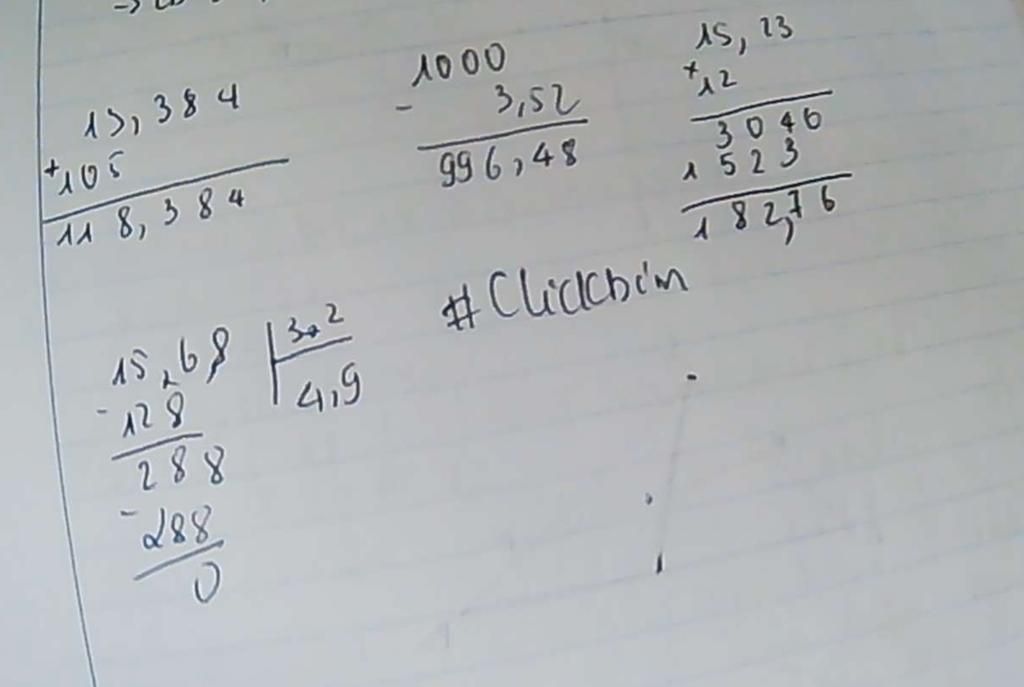 13,384
+105
118,384
1000
- 3,52
996,48
15,23
×12
3046
1523
182,76
15,68 3,2
-128 4,9
288
-288
0